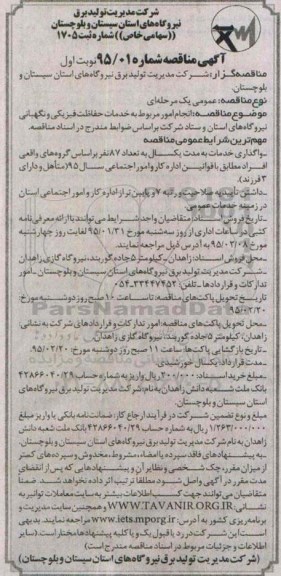 شرکت مدیریت تولید برق
نیروگاه‌های استان سیستان و بلوچستان
((سهامی خاص)) شماره ثبت ۱۷۰۵
آگهی مناقصه شماره ۹۵/۰۱ نوبت اول
مناقصه گزار: شرکت مدیریت تولید برق نیروگاه‌های استان سیستان و
بلوچستان.
نوع مناقصه: عمومی یک مرحله‌ای
موضوع مناقصه: انجام امور مربوط به خدمات حفاظت فیزیکی و نگهبانی
نیروگاه‌های استان و ستاد شرکت براساس ضوابط مندرج در اسناد مناقصه.
مهم‌ترین شرایط عمومی مناقصه
ـ واگذاری خدمات به مدت یکسال به تعداد ۸۷ نفر براساس گروه‌های واقعی
افراد مطابق با قوانین اداره کار و امور اجتماعی سال ۹۵ (متأهل و دارای
۳ فرزند).
ـ داشتن تأییدیه صلاحیت و رتبه ۷ و پایین‌تر از اداره کار و امور اجتماعی استان
در زمینه خدمات عمومی.
ـ تاریخ فروش اسناد: متقاضیان واجد شرایط می‌توانند با ارائه معرفی‌نامه
کتبی در ساعات اداری از روز سه‌شنبه مورخ ۹۵/۰۱/۳۱ لغایت روز چهارشنبه
مورخ ۹۵/۰۲/۰۸ به آدرس ذیل مراجعه نمایند.
ـ محل فروش اسناد: زاهدان ـ کیلومتر ۵ جاده گوربند، نیروگاه گازی زاهدان
ـ شرکت مدیریت تولید برق نیروگاه‌های استان سیستان و بلوچستان ـ امور
تدارکات و قراردادها ـ تلفن: ۳۳۴۴۷۴۵۳-۰۵۴
تاریخ تحویل پاکت‌های مناقصه: تا ساعت ۱۰ صبح روز دوشنبه مورخ:
۹۵/۰۲/۲۰
ـ محل تحویل پاکت‌های مناقصه: امور تدارکات و قراردادهای شرکت به نشانی
زاهدان: کیلومتر ۵ جاده گوربند، نیروگاه گازی زاهدان.
ـ تاریخ بازگشایی پاکت‌ها: ساعت ۱۱ صبح روز دوشنبه مورخ: ۹۵/۰۲/۲۰
ـ مدت قرارداد: یکسال خورشیدی.
ـ مبلغ خرید اسناد: ۲۰۰/۰۰۰ ریال واریز به شماره حساب ۴۲۸۶۶۰۴۰/۲۹
بانک ملت شعبه دانش زاهدان به نام شرکت مدیریت تولید برق نیروگاه‌های
استان سیستان و بلوچستان.
مبلغ و نوع تضمین شرکت در فرآیند ارجاع کار: ضمانت‌نامه بانکی یا واریز مبلغ
۱/۲۶۳/۰۰۰/۰۰۰ ریال به شماره حساب ۴۲۸۶۶۰۴۰/۲۹ بانک ملت شعبه دانش
زاهدان به نام شرکت مدیریت تولید برق نیروگاه‌های استان سیستان و بلوچستان.
ـ به پیشنهادهای فاقد سپرده یا امضاء، مشروط، مخدوش و سپرده‌های کمتر
از میزان مقرر، چک شخصی و نظایر آن و پیشنهادهایی که پس از انقضای
مدت مقرر در آگهی واصل شود مطلقاً ترتیب اثر داده نخواهد شد. ضمناً
متقاضیان می‌توانند جهت کسب اطلاعات بیشتر به سایت معاملات توانیر به
نشانی: WWW.TAVANIR.ORG.IR و همچنین سایت مدیریت و
برنامه‌ریزی کشور به آدرس: www.iets.mporg.ir مراجعه نمایند. بدیهی
است این شرکت در رد یا قبول یک و یا کلیه پیشنهادها مختار است. (سایر
اطلاعات و جزئیات مربوط در اسناد مناقصه مندرج است)
(شرکت مدیریت تولید برق نیروگاه‌های استان سیستان و بلوچستان)